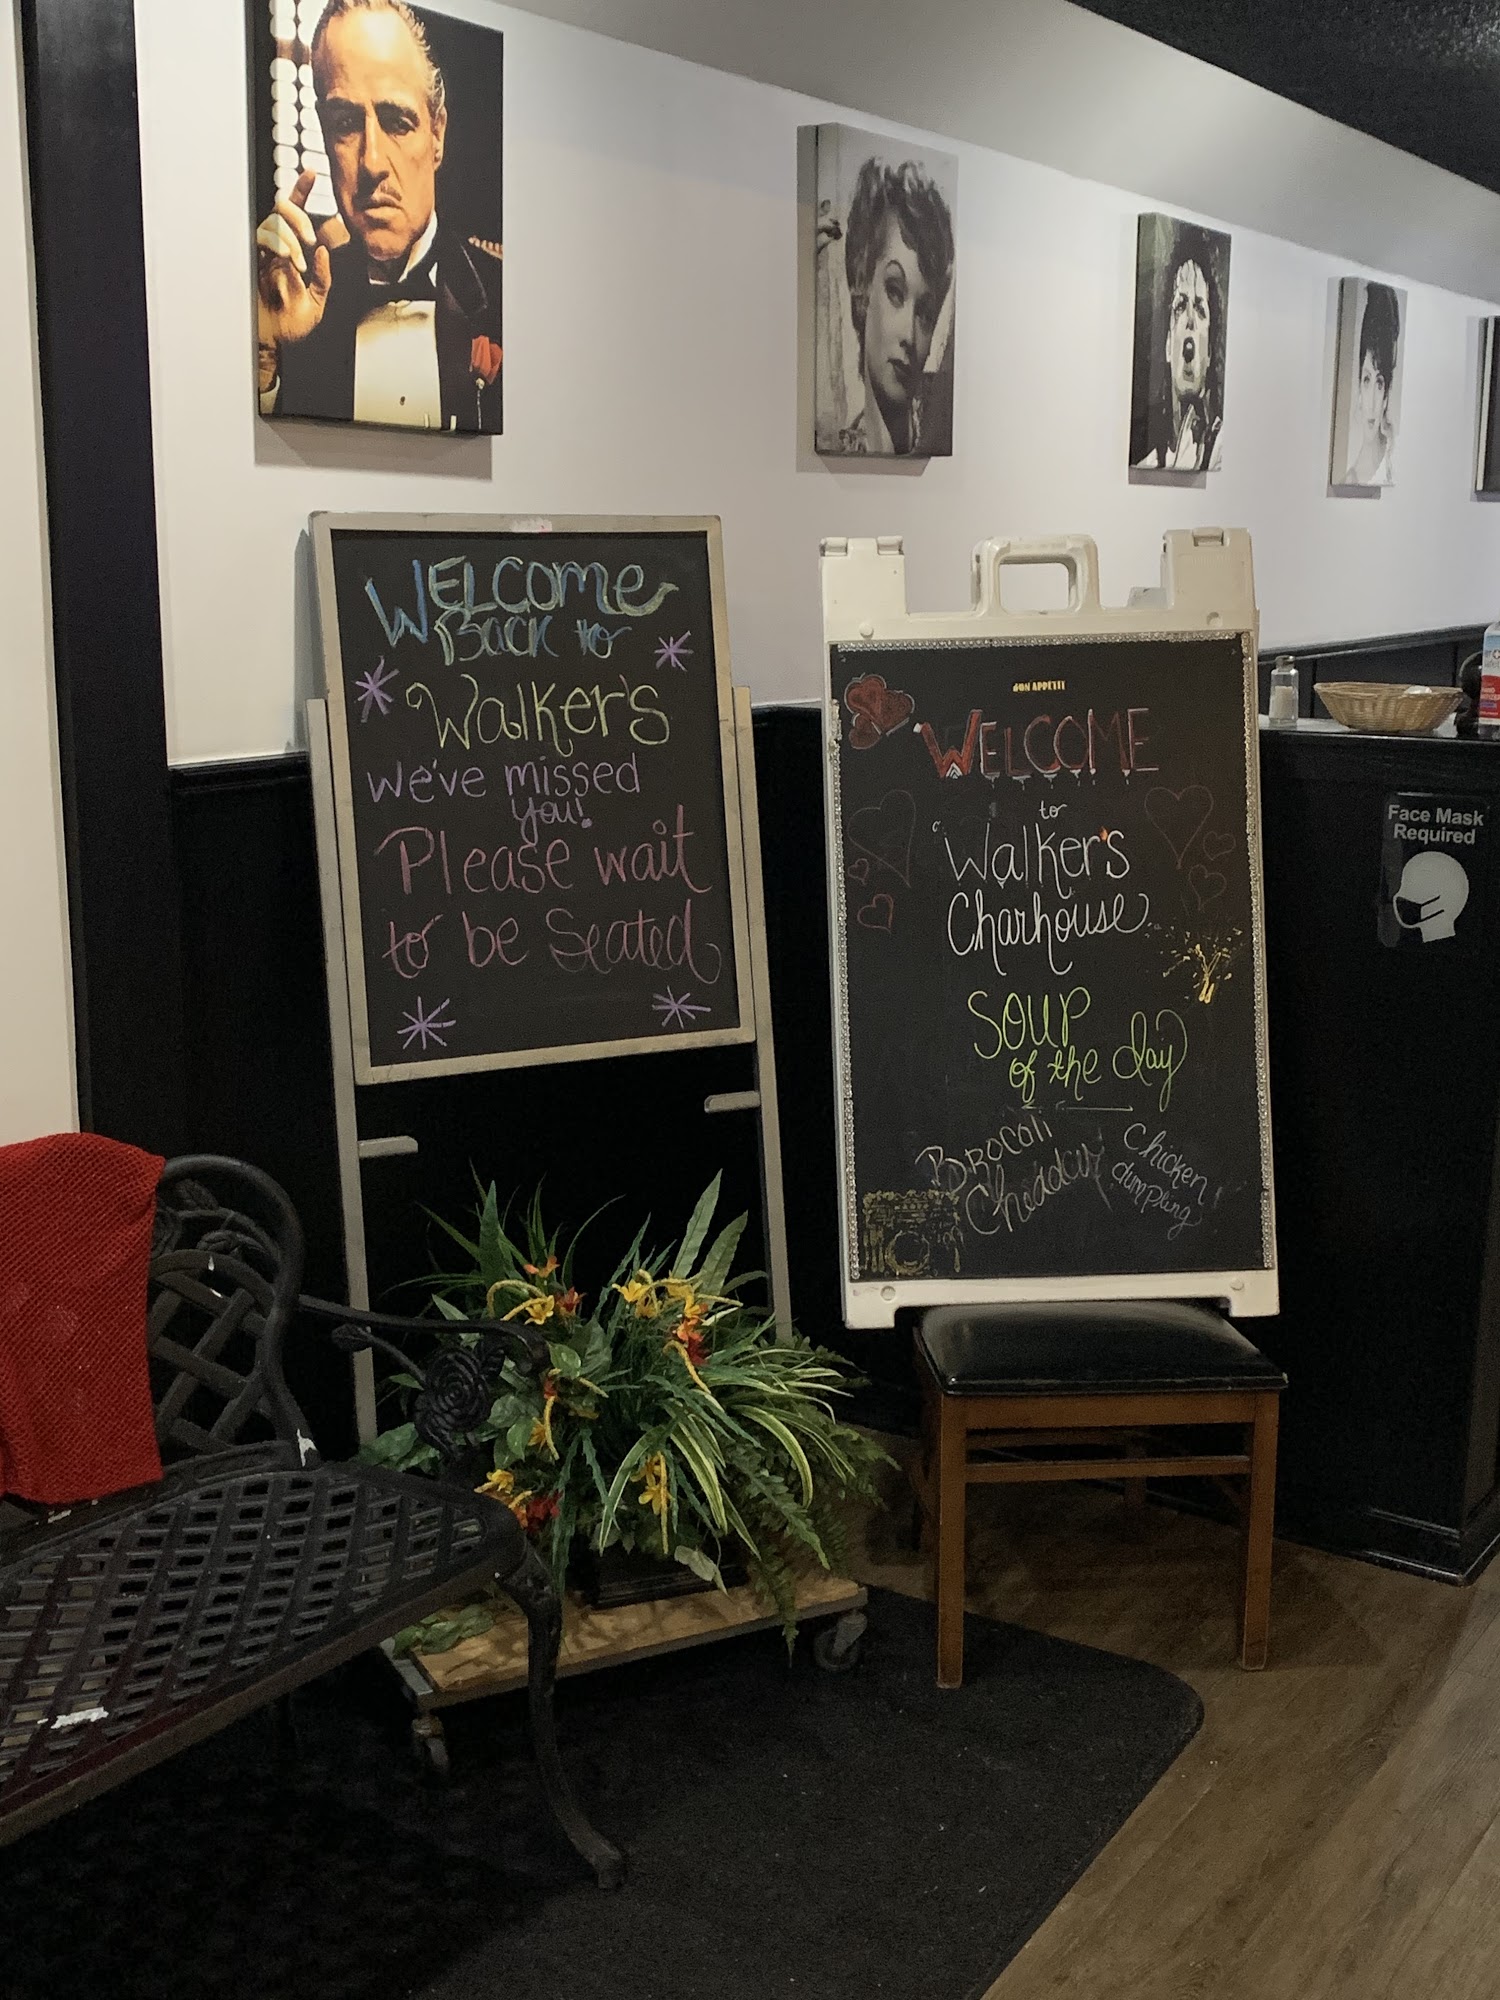 WELCOME
BACK to
Walker's
We've missed
you!
Please wait
to be Seated
BON APPETIT
WELCOME
to
Walker's
Charhouse
SOUP
of the day
BROCOLI
Cheddar
Chicken
dumpling
Face Mask
Required